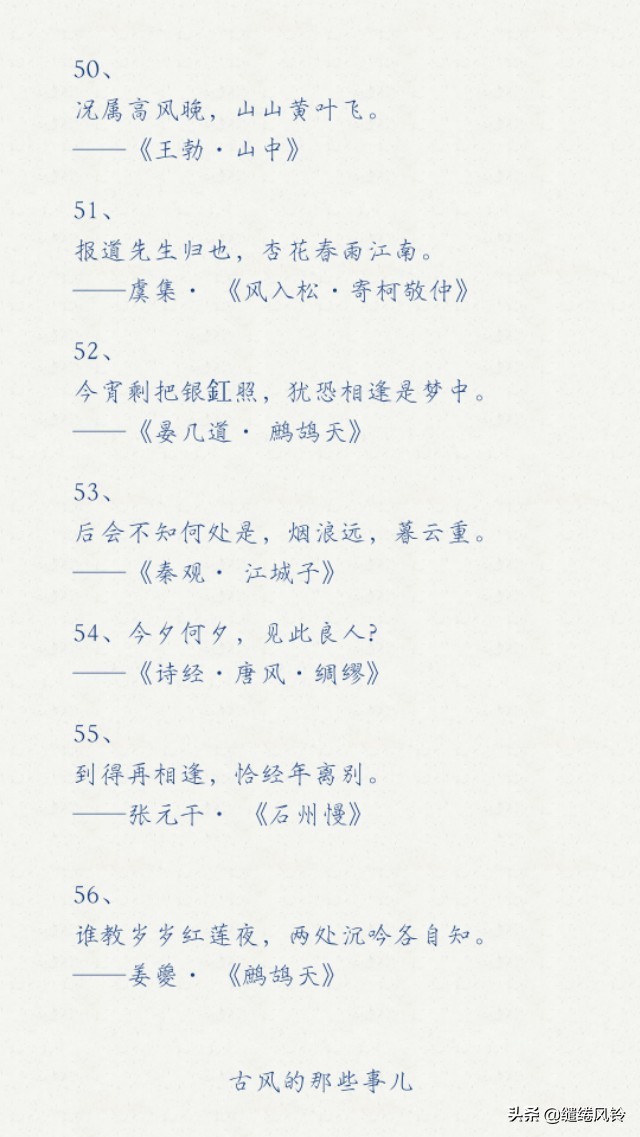 50、
况属高风晚，山山黄叶飞。
——《王勃·山中》
51、
报道先生归也，杏花春雨江南。
——虞集· 《风入松·寄柯敬仲》
52、
今宵剩把银釭照，犹恐相逢是梦中。
——《晏几道· 鹧鸪天》
53、
后会不知何处是，烟浪远，暮云重。
——《秦观· 江城子》
54、今夕何夕，见此良人？
——《诗经·唐风·绸缪》
55、
到得再相逢，恰经年离别。
——张元干· 《石州慢》
56、
谁教岁岁红莲夜，两处沉吟各自知。
——姜夔· 《鹧鸪天》
古风的那些事儿
头条 @缱绻风铃